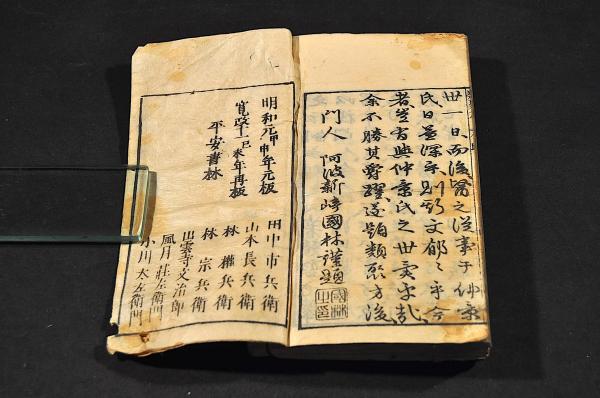 世一日而後醫之從事于仲景
氏日益深文郁〻乎今
者豈啻與仲景氏之世乎哉
余不勝其爵躍遂題類聚方後
門人 阿波新崎國林謹題
國林之印
明和元甲申年元板
寛政十一己未年再板
平安書林
田中市兵衛
山本長兵衛
林權兵衛
林宗兵衛
出雲寺文治郎
風月莊左衛門
小川太左衛門